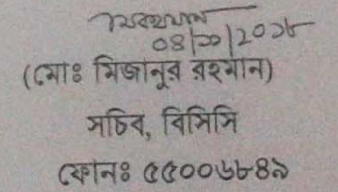 ০৪/১০/২০১৮
(মোঃ মিজানুর রহমান)
সচিব, বিসিসি
ফোনঃ ৫৫০০৬৮৪৯